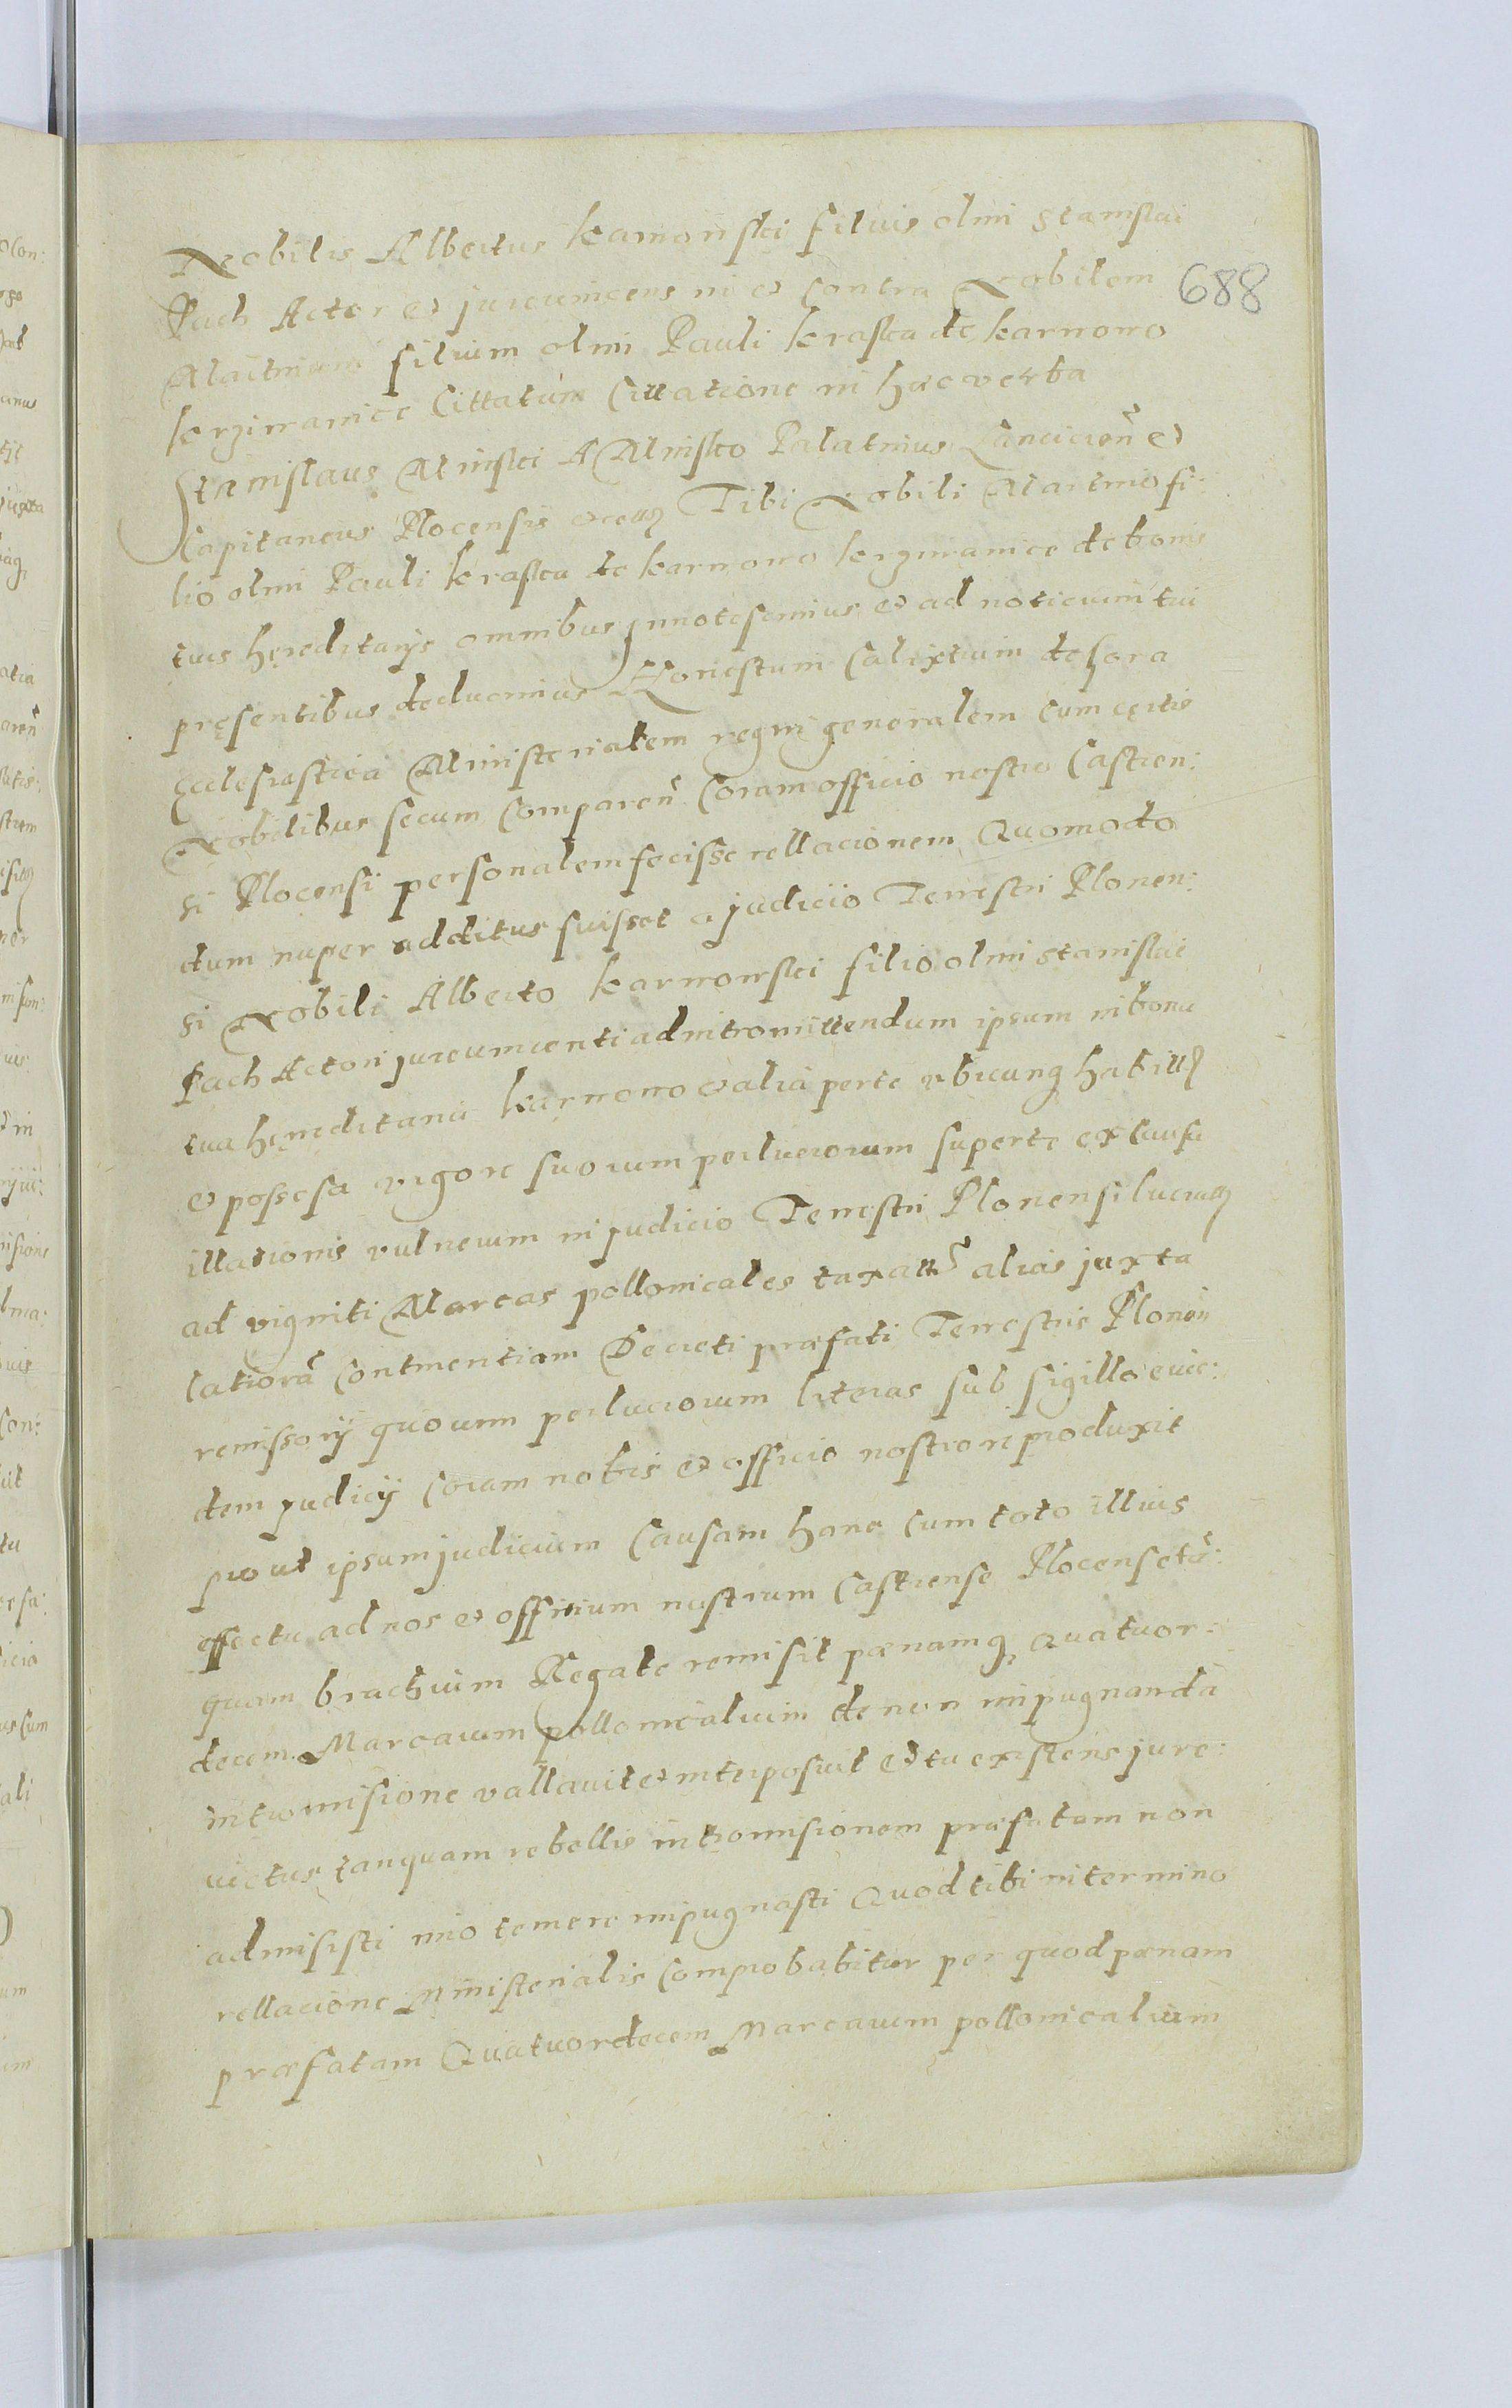 Nobilis Albertus karnowski filius olim Stanislai
Pach Actor et jurevincens in et Contra Nobilem
688
Martinum filium olim Pauli kraska de karnowo
krziwanice Cittatum Cittatione in haec verba
Stanislaus Minski A Minsko Palatinus Lancicien et
Capitaneus Plocensis Tibi Nobili Martino fi:
lio olim Pauli kraska de karnowo krziwanice de bonis
tuis hęreditarys omnibus innotescimus et ad noticiam tui
pręsentibus deducimus Honestum Calixtum de Gora
Ecclesiastica Ministerialem regni generalem cum cęrtis
Nobilibus secum Comparen Coram officio nostro Castren:
si Plocensi personalem fecisse rellacionem Quomodo
dum nuper additus fuisset a judicio Terrestri Plonen:
si Nobili Alberto karnowski filio olim Stanislai
Pach Actori jurevincenti ad intromittendum ipsum in bona
tua hęreditaria karnowo et alia per te ubicunq habitta
et possesa vigore suorum perlucrorum super te ex causa
illationis vulnerum in judicio Terrestri Plonensi
ad viginti Marcas pollonicales taxatt alias juxta
latiorem Continentiam Decreti praefati Terrestris Plonen
remissory quorum perlucrorum literas sub sigillo eius:
dem judicij Coram nobis et officio nostro reproduxit
prout ipsum judicium Causam hanc Cum toto illius
effectu ad nos et officium nostrum Castrense Plocense tan:
quam brachium Regale remisit paenamq Quatuor:
decem Marcarum pollonicalium de non impugnanda
intromisione vallavit et interposuit et tu existens jure:
victus tanquam rebellis intromisionem praefatam non
admisisti imo temere impugnasti Quod tibi in termino
rellacione Ministerialis Comprobabitur per quod paenam
praefatam Quatuordecem Marcarum pollonicalium